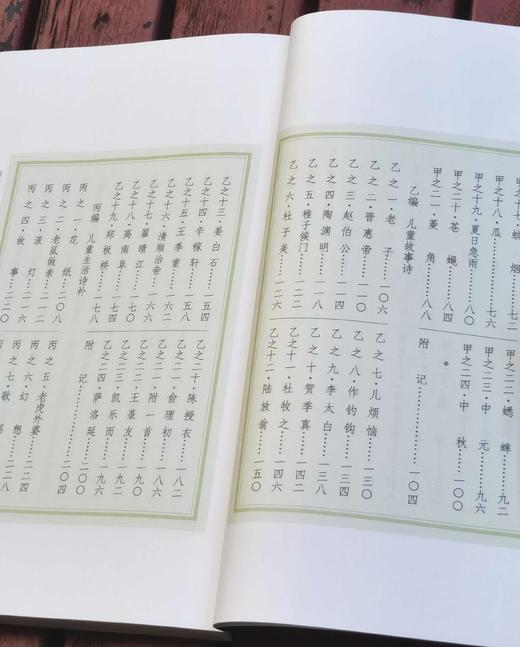 甲之十七·蚊烟……七二
甲之十八·瓜……七六
甲之十九·夏日急雨……八〇
甲之二十·苍蝇……八四
甲之二一·菱角……八八
乙编 儿童故事诗
乙之一·老子……一〇六
乙之二·晋惠帝……一一〇
乙之三·赵伯公……一一四
乙之四·陶渊明……一一八
乙之五·稚子候门……一二二
乙之六·杜子美……一二六
甲之二二·蟋蟀……九二
甲之二三·中元……九六
甲之二四·中秋……一〇〇
*
附记……一〇四
乙之七·儿烦恼……一三〇
乙之八·作钓钩……一三四
乙之九·李太白……一三八
乙之十·贺季真……一四二
乙之十一·杜牧之……一四六
乙之十二·陆放翁……一五〇
乙之十三·姜白石……一五四
乙之十四·辛稼轩……一五八
乙之十五·王季重……一六二
乙之十六·清顺治帝……一六六
乙之十七·翟晴江……一七〇
乙之十八·高南阜……一七四
乙之十九·郑板桥……一七八
丙编 儿童生活诗补
丙之一·花纸……二〇八
丙之二·老鼠做亲……二一二
丙之三·滚灯……二一六
丙之四·故事……二二〇
乙之二十·陈授衣……一八二
乙之二一·俞理初……
乙之二一·附一首……
乙之二二·王菉友……
乙之二三·凯乐而……
乙之二四·萨洛延……
附记……
丙之五·老虎外婆……
丙之六·幻想……
丙之七·歌